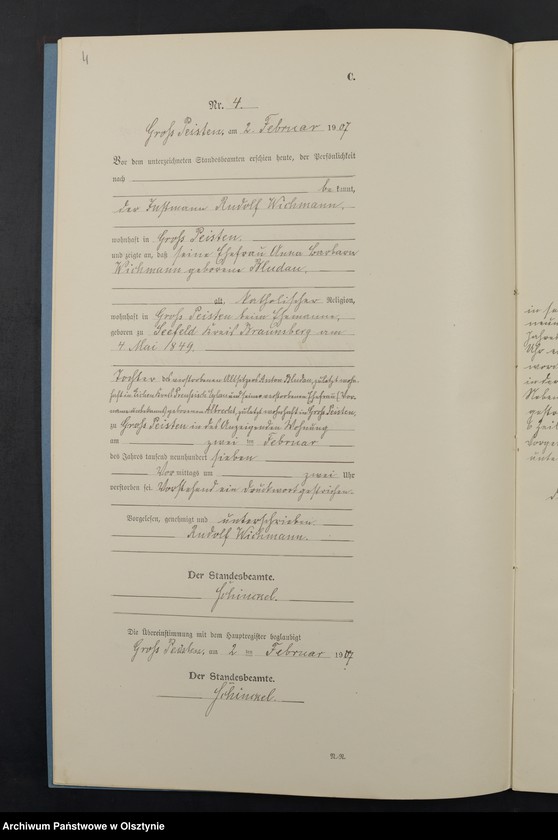 4
C.
Nr. 4.
Gross Peisten, am 2. Februar 1907
Vor dem unterzeichneten Standesbeamten erschien heute, der Persönlichkeit
nach
bekannt,
der Instmann Rudolf Wichmann,
wohnhaft in Gross Peisten,
und zeigte an, daß seine Ehefrau Anna Barbara
Wichmann geborene Bludau,
alt, Katholischer Religion,
wohnhaft in Gross Peisten beim Ehemanne,
geboren zu Seefeld Kreis Braunsberg am
4 Mai 1849,
Tochter des verstorbenen Altsitzers Anton Bludau, zuletzt wohn-
haft in Kreis Preussisch Eylau und seiner verstorbenen Ehefrau (Vor-
name unbekannt) geborenen Albrecht, zuletzt wohnhaft in Gross Peisten,
zu Gross Peisten in des Anzeigenden Wohnung
am zwei ten Februar
des Jahres tausend neunhundert sieben
Vormittags um zwei Uhr
verstorben sei. Vorstehend ein Druckwort gestrichen.
Vorgelesen, genehmigt und unterschrieben
Rudolf Wichmann.
Der Standesbeamte.
Schimkel.
Die Übereinstimmung mit dem Hauptregister beglaubigt
Gross Peisten, am 2 ten Februar 1907
Der Standesbeamte.
Schimkel.
N.-R.
in se
neun
Jahre
Uhr
wor
in der
Neben
gesto
Zeil
Vorge
unte
Archiwum Państwowe w Olsztynie